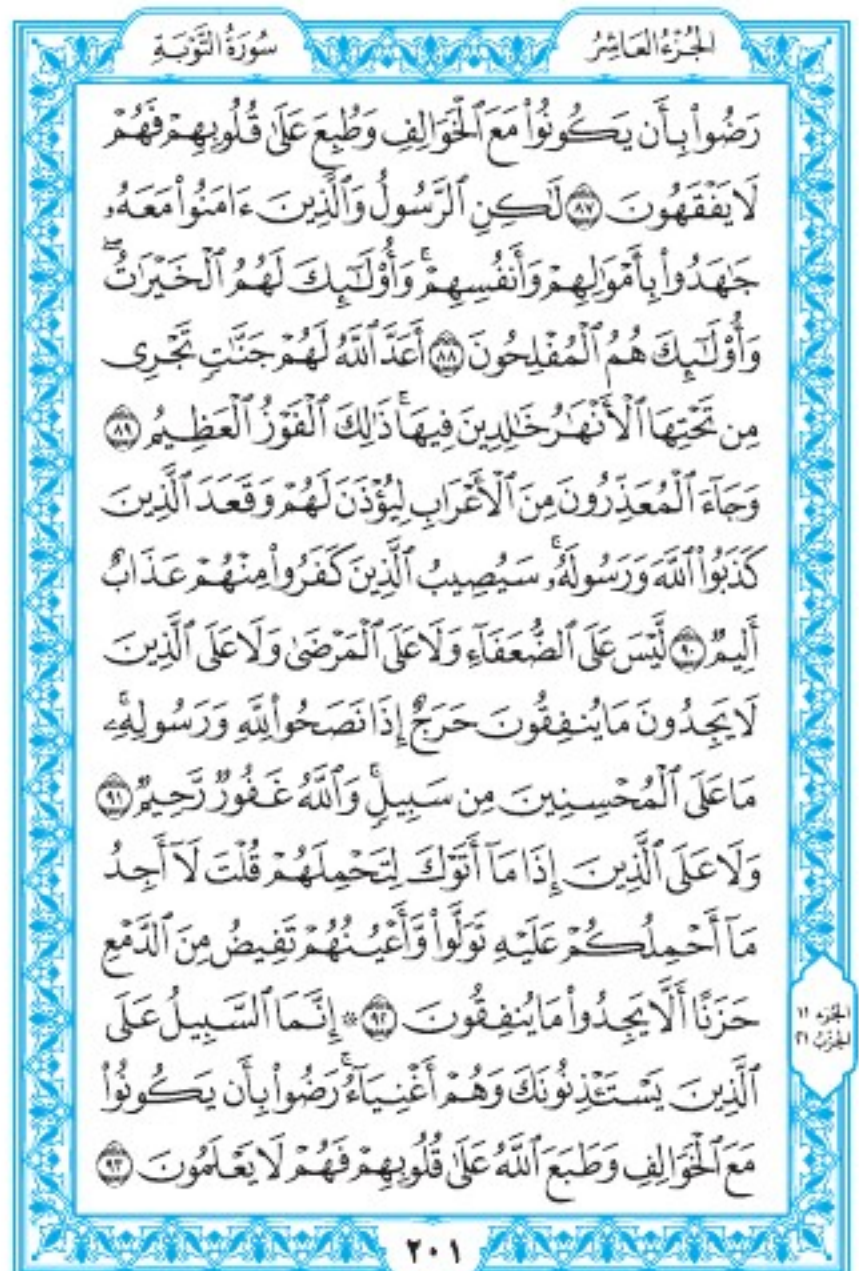 سُورَةُ التَّوْبَةِ
الجُزْءُ العَاشِرُ
رَضُوا۟ بِأَن يَكُونُوا۟ مَعَ ٱلْخَوَالِفِ وَطُبِعَ عَلَىٰ قُلُوبِهِمْ فَهُمْ
لَا يَفْقَهُونَ ٨٧ لَٰكِنِ ٱلرَّسُولُ وَٱلَّذِينَ ءَامَنُوا۟ مَعَهُۥ
جَٰهَدُوا۟ بِأَمْوَٰلِهِمْ وَأَنفُسِهِمْۚ وَأُو۟لَٰٓئِكَ لَهُمُ ٱلْخَيْرَٰتُۖ
وَأُو۟لَٰٓئِكَ هُمُ ٱلْمُفْلِحُونَ ٨٨ أَعَدَّ ٱللَّهُ لَهُمْ جَنَّٰتٍ تَجْرِى
مِن تَحْتِهَا ٱلْأَنْهَٰرُ خَٰلِدِينَ فِيهَاۚ ذَٰلِكَ ٱلْفَوْزُ ٱلْعَظِيمُ ٨٩
وَجَآءَ ٱلْمُعَذِّرُونَ مِنَ ٱلْأَعْرَابِ لِيُؤْذَنَ لَهُمْ وَقَعَدَ ٱلَّذِينَ
كَذَبُوا۟ ٱللَّهَ وَرَسُولَهُۥۚ سَيُصِيبُ ٱلَّذِينَ كَفَرُوا۟ مِنْهُمْ عَذَابٌ
أَلِيمٌ ٩٠ لَّيْسَ عَلَى ٱلضُّعَفَآءِ وَلَا عَلَى ٱلْمَرْضَىٰ وَلَا عَلَى ٱلَّذِينَ
لَا يَجِدُونَ مَا يُنفِقُونَ حَرَجٌ إِذَا نَصَحُوا۟ لِلَّهِ وَرَسُولِهِۦۚ
مَا عَلَى ٱلْمُحْسِنِينَ مِن سَبِيلٍۚ وَٱللَّهُ غَفُورٌ رَّحِيمٌ ٩١
وَلَا عَلَى ٱلَّذِينَ إِذَا مَآ أَتَوْكَ لِتَحْمِلَهُمْ قُلْتَ لَآ أَجِدُ
مَآ أَحْمِلُكُمْ عَلَيْهِ تَوَلَّوا۟ وَّأَعْيُنُهُمْ تَفِيضُ مِنَ ٱلدَّمْعِ
حَزَنًا أَلَّا يَجِدُوا۟ مَا يُنفِقُونَ ٩٢ ۞ إِنَّمَا ٱلسَّبِيلُ عَلَى
ٱلَّذِينَ يَسْتَـْٔذِنُونَكَ وَهُمْ أَغْنِيَآءُۚ رَضُوا۟ بِأَن يَكُونُوا۟
مَعَ ٱلْخَوَالِفِ وَطَبَعَ ٱللَّهُ عَلَىٰ قُلُوبِهِمْ فَهُمْ لَا يَعْلَمُونَ ٩٣
الجُزء ١١
الحِزْبُ ٢١
٢٠١